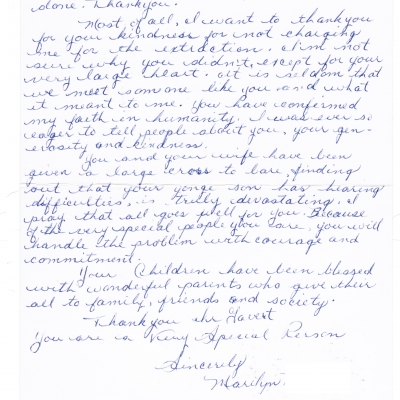 done. Thankyou.
Most of all, I want to thankyou
for your kindness for not charging
me for the extraction. I'm not
sure why you didn't, except for your
very large heart. It is seldom that
we meet someone like you and what
it meant to me. You have confermed
my faith in humanity. I was ever so
eager to tell people about you, your gen-
erosity and kindness.
You and your wife have been
given a large cross to bare, finding
out that your yonge son has hearing
difficulties, is trully devastating. I
pray that all goes well for you. Because
of the very special people you are, you will
handle the problem with courage and
commitment.
Your Children have been blessed
with wonderful parents who give their
all to family, friends and society.
Thankyou
You are a Very Special Person
Sincerely
Marilyn.